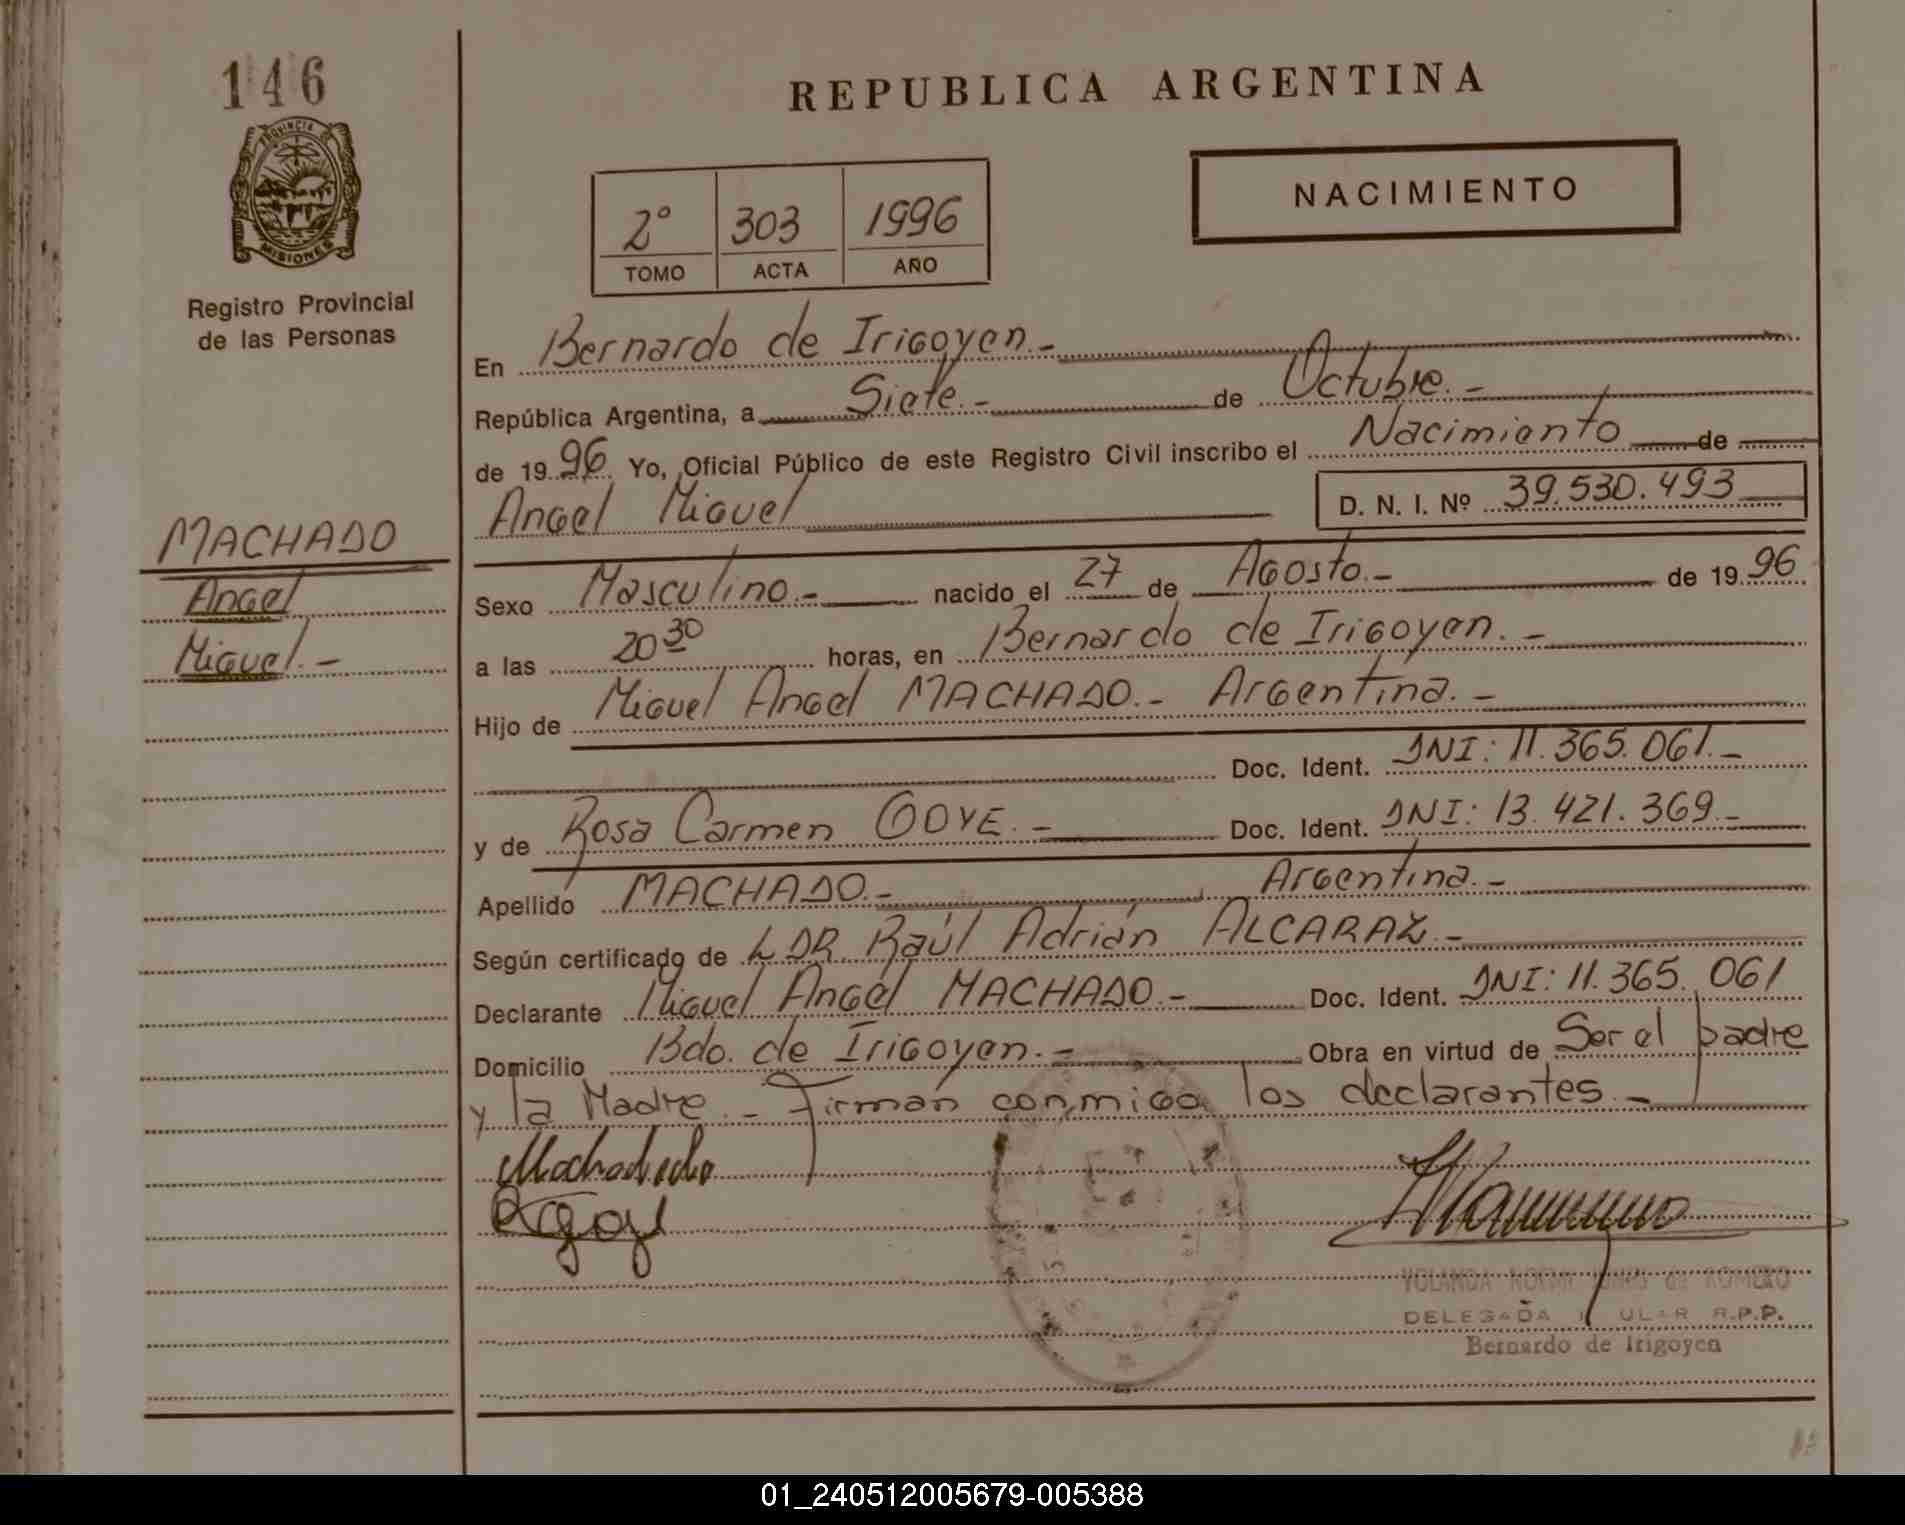 146
REPUBLICA ARGENTINA
PROVINCIA DE
MISIONES
Registro Provincial
de las Personas
NACIMIENTO
2º 303 1996
TOMO ACTA AÑO
En Bernardo de Irigoyen.-
República Argentina, a Siete.- de Octubre.-
de 1996. Yo, Oficial Público de este Registro Civil inscribo el Nacimiento de
Angel Miguel D. N. I. Nº 39.530.493
MACHADO
Angel
Miguel.-
Sexo Masculino.- nacido el 27 de Agosto.- de 1996
a las 20 30 horas, en Bernardo de Irigoyen.-
Hijo de Miguel Angel MACHADO.- Argentina.-
Doc. Ident. DNI: 11.365.061.-
y de Rosa Carmen GOYE.- Doc. Ident. DNI: 13.421.369.-
Apellido MACHADO.- Argentina.-
Según certificado de DR. Raúl Adrián ALCARAZ.-
Declarante Miguel Angel MACHADO.- Doc. Ident. DNI: 11.365.061
Domicilio Bdo. de Irigoyen.- Obra en virtud de Ser el padre
y la Madre.- Firman conmigo los declarantes.-
YOLANDA NOEMI de ROMERO
DELEGADA R.P.P.
Bernardo de Irigoyen
01_240512005679-005388